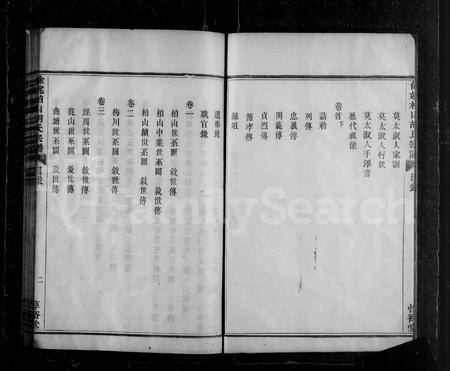 莫太淑人家訓
莫太淑人行狀
莫太淑人手澤書
歷代祠像
卷首下
誥勅
列傳
忠義傳
閨範傳
貞烈傳
選舉錄
職官錄
卷一
柏山世系圖 敘世傳
柏山中葉世系圖 敘世傳
柏山續世系圖 敘世傳
卷二
梅川世系圖 敘世傳
卷三
世系圖 敘世傳
世系圖 敘世傳
曲塘世系圖 敘世傳
目錄
二
FamilySearch